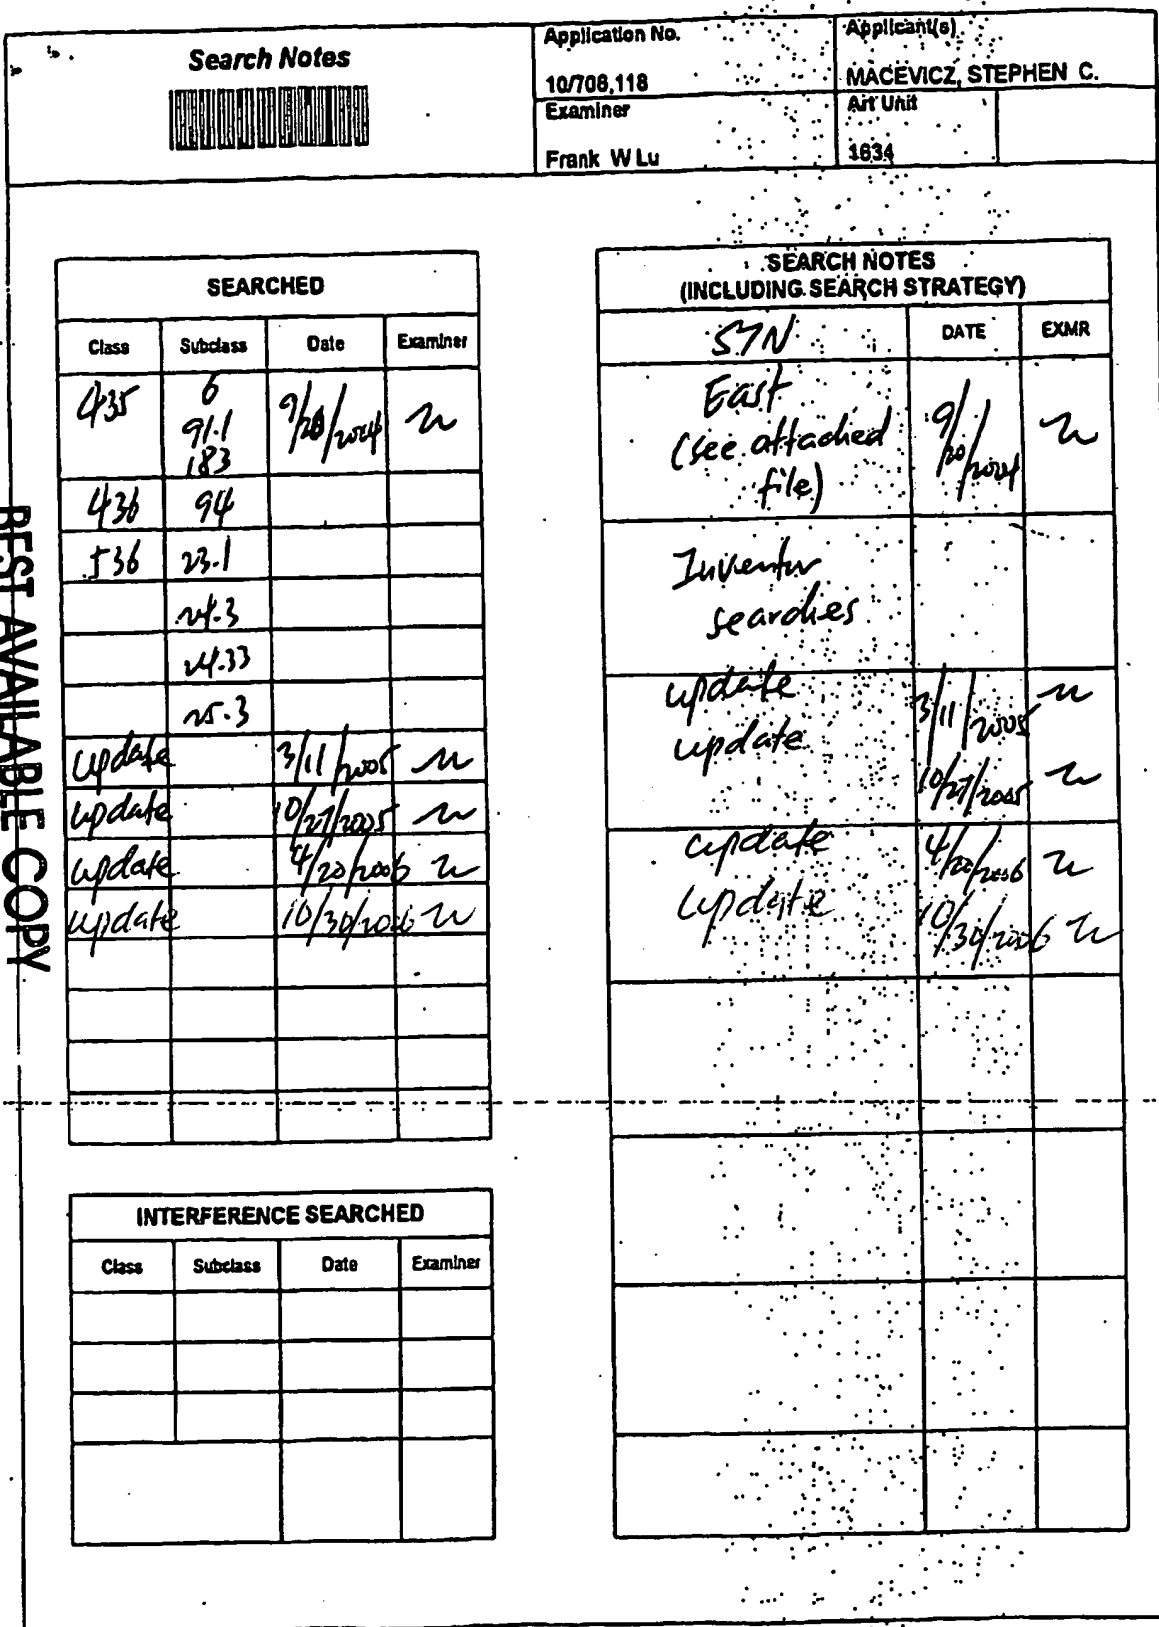 Search Notes
Application No.
10/706,118
Applicant(s)
MACEVICZ, STEPHEN C.
Examiner
Frank W Lu
Art Unit
1634
SEARCHED
Class Subclass Date Examiner
435 6 9/20/2004
91.1
183
436 94
536 23.1
24.3
24.33
25.3
update 3/11/2005
update 10/27/2005
update 4/20/2006
update 10/30/2006
INTERFERENCE SEARCHED
Class Subclass Date Examiner
SEARCH NOTES
(INCLUDING SEARCH STRATEGY)
STN DATE EXMR
East
(see attached
file) 9/20/2004
Inventor
searches
update 3/11/2005
update 10/27/2005
update 4/20/2006
update 10/30/2006
BEST AVAILABLE COPY